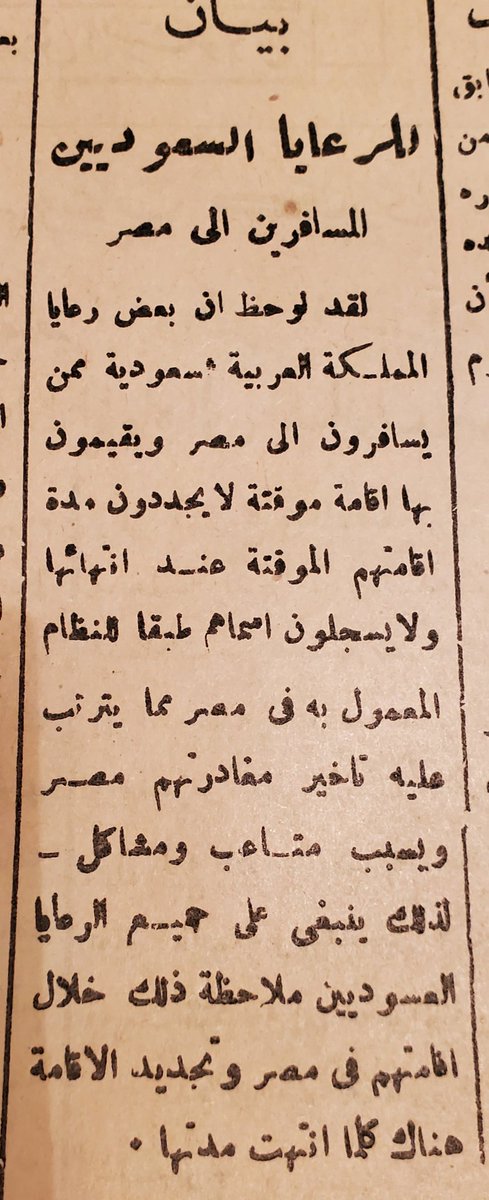 بيان
للرعايا السعوديين
المسافرين الى مصر
لقد لوحظ ان بعض رعايا
المملكة العربية سعودية ممن
يسافرون الى مصر ويقيمون
بها اقامة موقتة لا يجددون مدة
اقامتهم الموقتة عند انتهائها
ولا يسجلون اسماهم طبقا للنظام
المعمول به فى مصر مما يترتب
عليه تاخير مغادرتهم مصر
ويسبب متاعب ومشاكل -
لذلك ينبغى على جميع الرعايا
العسوديين ملاحظة ذلك خلال
اقامتهم فى مصر وتجديد الاقامة
هناك كلما انتهت مدتها .